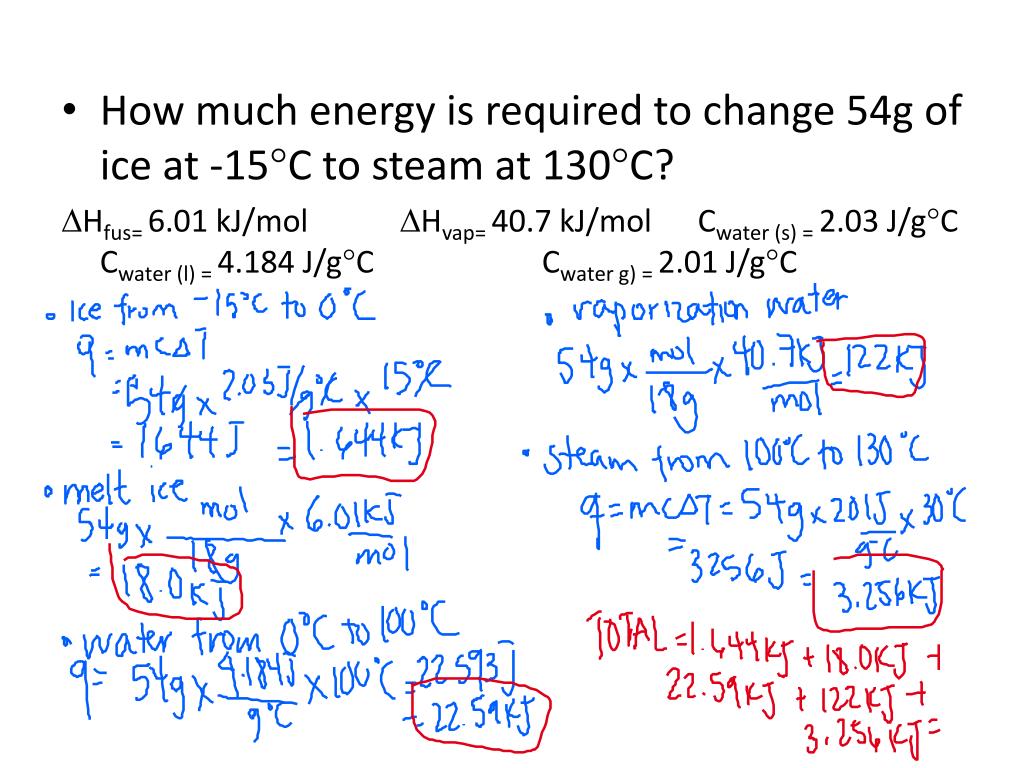 • How much energy is required to change 54g of
ice at -15°C to steam at 130°C?
ΔHfus= 6.01 kJ/mol ΔHvap= 40.7 kJ/mol Cwater (s) = 2.03 J/g°C
Cwater (l) = 4.184 J/g°C Cwater g) = 2.01 J/g°C
• Ice from -15°C to 0°C
q = mCΔT
= 54g x 2.03J/g°C x 15°C
= 1644J = 1.644KJ
• melt ice
54g x mol/18g x 6.01KJ/mol
= 18.0KJ
• water from 0°C to 100°C
q = 54g x 4.184J/g°C x 100°C = 22593J
= 22.59KJ
• vaporization water
54g x mol/18g x 40.7KJ/mol = 122KJ
• steam from 100°C to 130°C
q = mCΔT = 54g x 2.01J/g°C x 30°C
= 3256J = 3.256KJ
TOTAL = 1.644KJ + 18.0KJ +
22.59KJ + 122KJ +
3.256KJ =